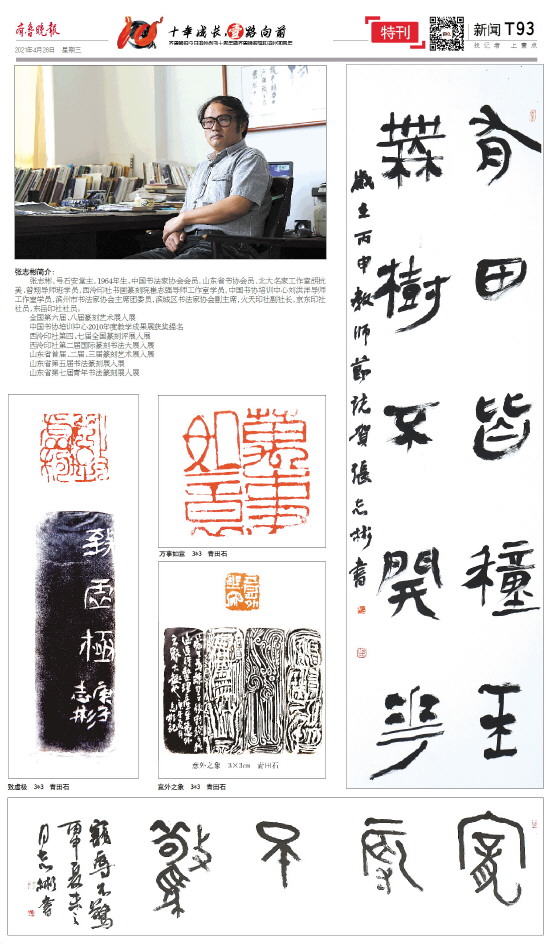 齐鲁晚报
2021年4月28日 星期三
十年成长 壹路向前
特刊
新闻 T93
找记者 上壹点
张志彬简介:
张志彬,号石安堂主,1964年生,中国书法家协会会员,山东省书协会员,北大名家工作室顾抗
美、曾翔导师班学员,西泠印社书画篆刻院崔志强导师工作室学员,中国书协培训中心刘洪洋导师
工作室学员,滨州市书法家协会主席团委员,滨城区书法家协会副主席,火天印社副社长,京东印社
社员,东岳印社社员。
全国第六届、八届篆刻艺术展入展
中国书协培训中心2010年度教学成果展获奖提名
西泠印社第四、七届全国篆刻评展入展
西泠印社第二届国际篆刻书法大展入展
山东省首届、二届、三届篆刻艺术展入展
山东省第五届书法篆刻展入展
山东省第七届青年书法篆刻展入展
有田皆種玉
無樹不開花
歲在丙申教師節
張志彬書
致虚極
庚子
志彬
致虚极 3*3 青田石
万事如意
万事如意 3*3 青田石
意外之象 3×3cm 青田石
意外之象 3*3 青田石
寵辱不驚
寵辱不驚
丙申夏末之
月志彬書